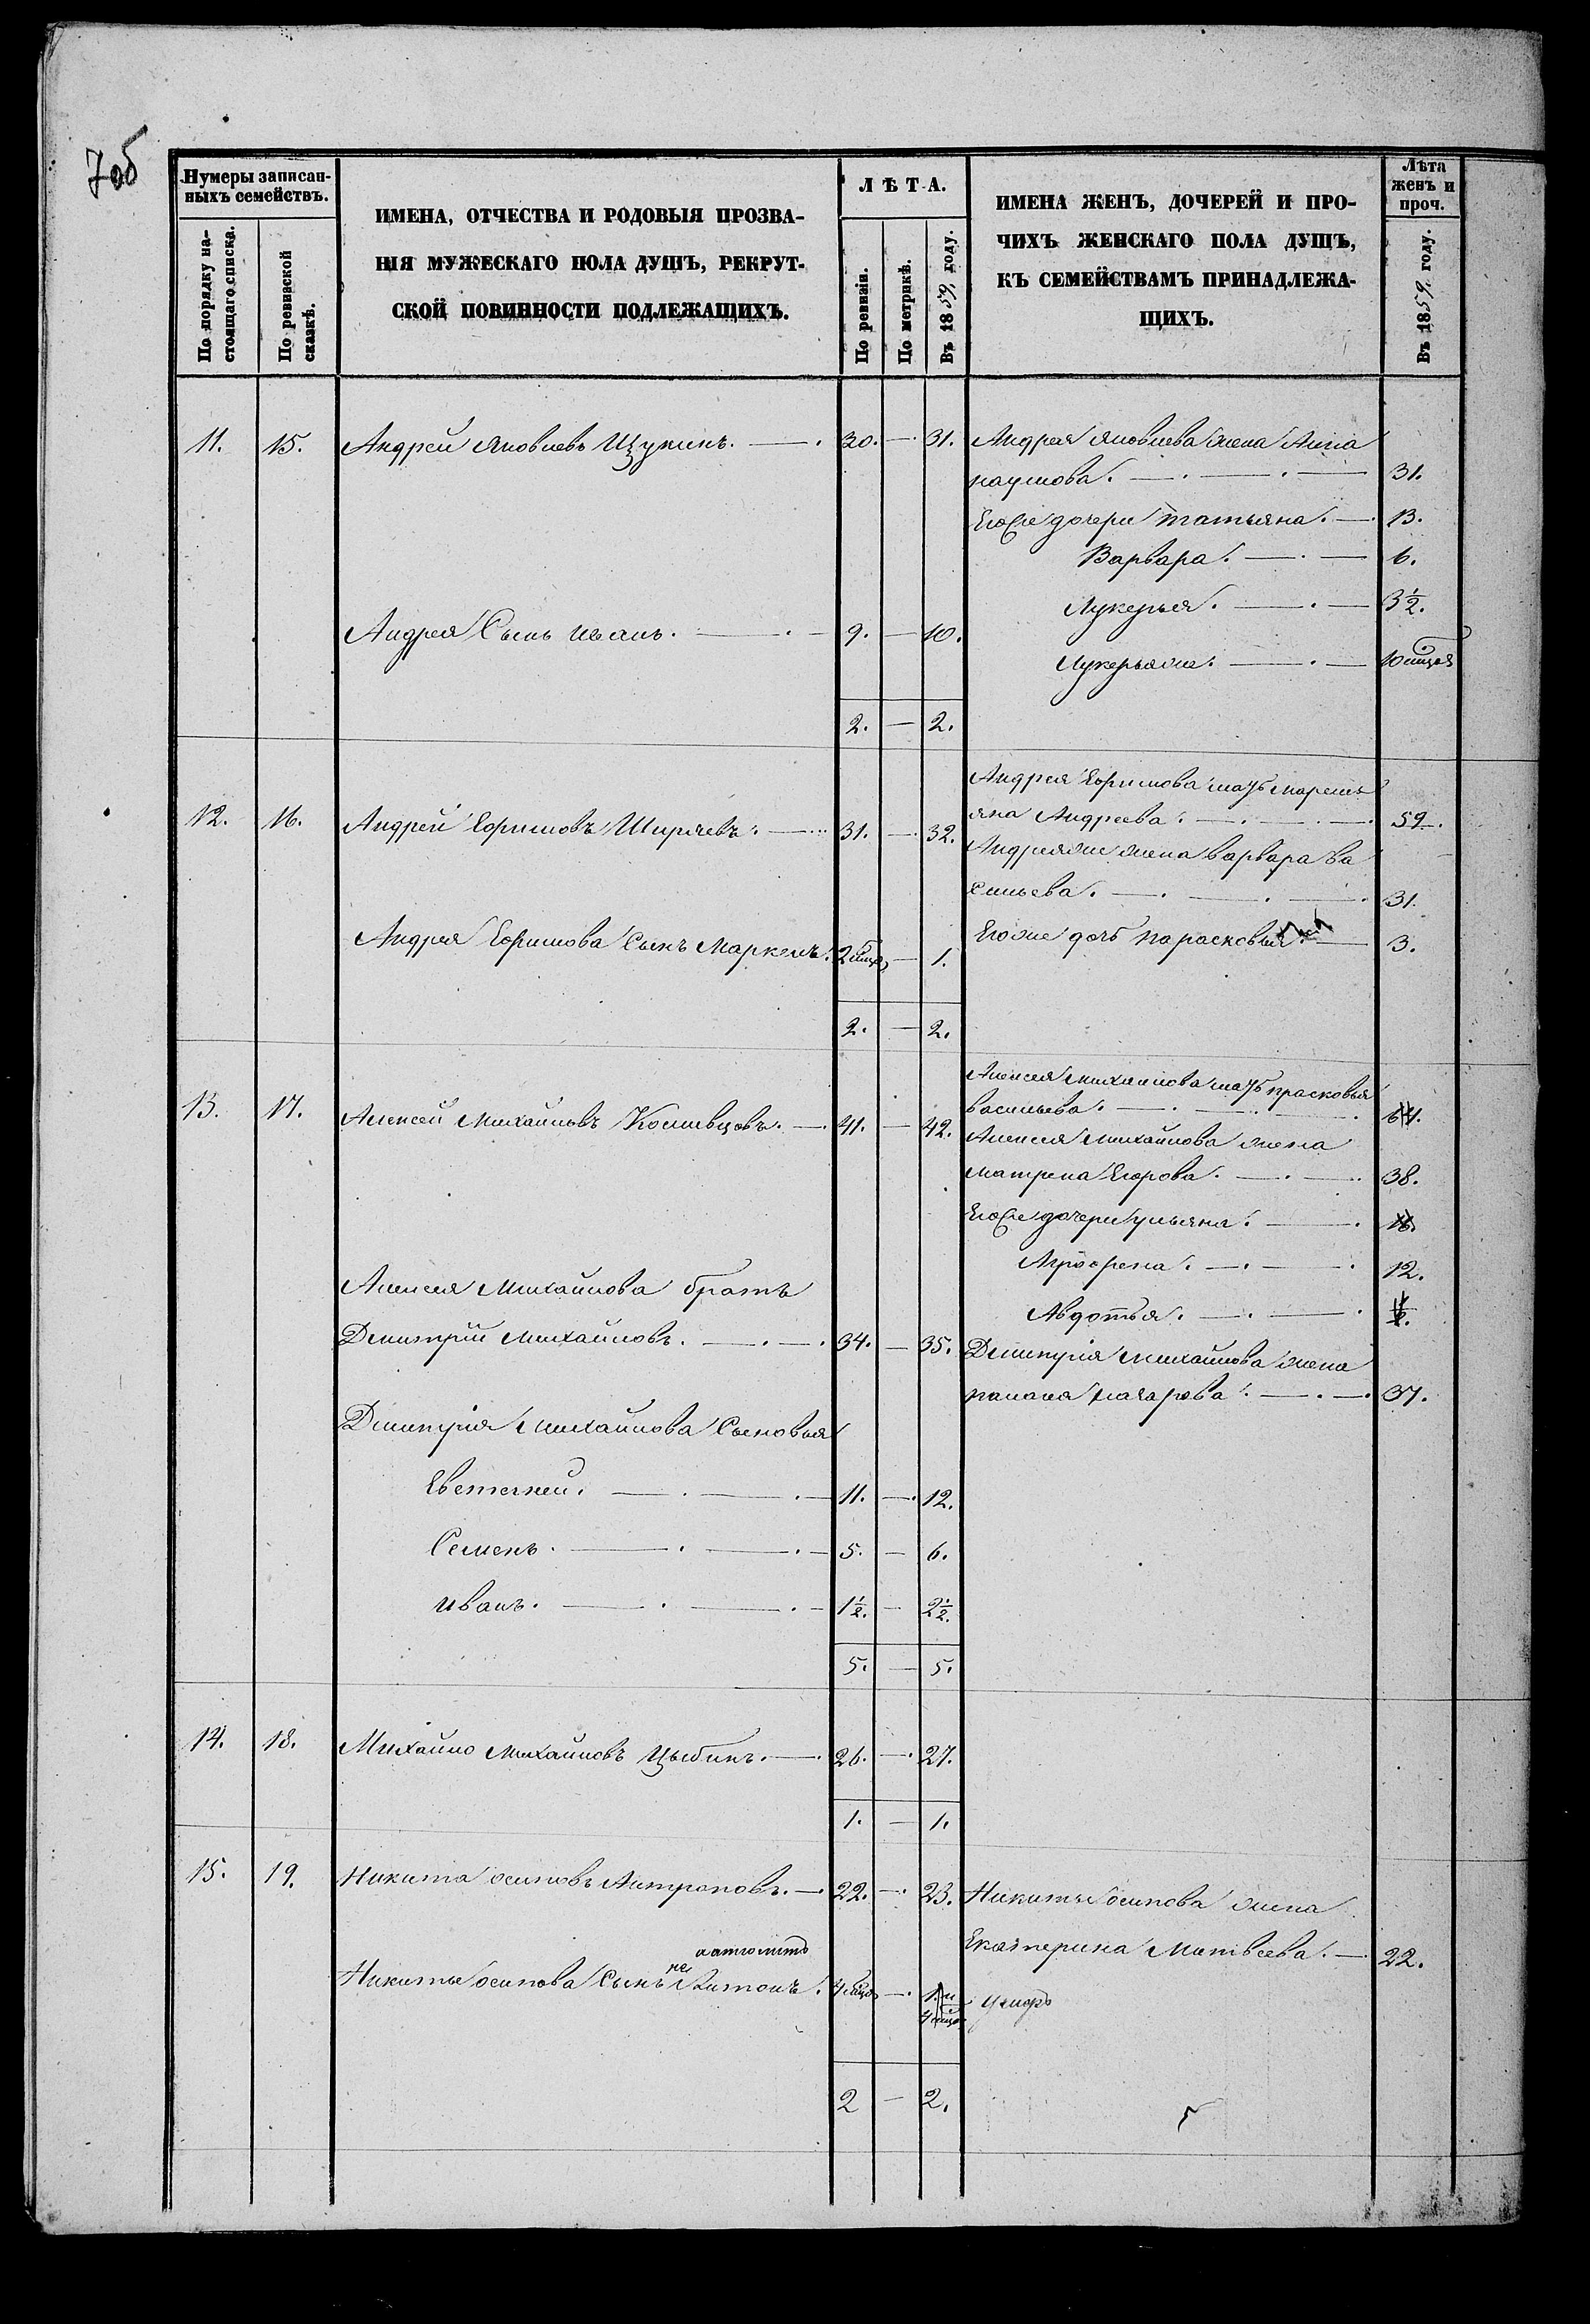 7об
Нумеры записан-
ныхъ семействъ.
По порядку на-
стоящаго списка.
По ревизской
сказкѣ.
ИМЕНА, ОТЧЕСТВА И РОДОВЫЯ ПРОЗВА-
НІЯ МУЖЕСКАГО ПОЛА ДУШЪ, РЕКРУТ-
СКОЙ ПОВИННОСТИ ПОДЛЕЖАЩИХЪ.
ЛѢТА.
По ревизіи.
По метрикѣ.
Въ 1859 году.
ИМЕНА ЖЕНЪ, ДОЧЕРЕЙ И ПРО-
ЧИХЪ ЖЕНСКАГО ПОЛА ДУШЪ,
КЪ СЕМЕЙСТВАМЪ ПРИНАДЛЕЖА-
ЩИХЪ.
Лѣта
женъ и
проч.
Въ 1859 году.
11. 15. Андрей Яковлевъ Щукинъ. 30. — 31. Андрея Яковлева жена Анна
наумова. 31.
Его же дочери татьяна. 13.
Варвара. 6.
Лукерья. 3½.
Андрея Сынъ иванъ. 9. — 10.
Лукерья же. 10 мцов
2. — 2.
Андрея Ефимова мать маремь
12. 16. Андрей Ефимовъ Ширяевъ. 31. — 32. яна Андреева. 59.
Андрея же жена варвара ва
сильева. 31.
Андрея Ефимова Сынъ Маркелъ. 2 мцов — 1. Его же дочь парасковья 3.
2. — 2.
Алексея михаилова мать прасковья
13. 17. Алексей Михаиловъ 41. — 42. васильева. 64.
Алексея Михаилова жена
матрена Егорова. 38.
Его же дочери ульяна.
Агрофена. 12.
Алексея Михаилова братъ
Авдотья.
Дмитрий Михаиловъ. 34. — 35. Дмитрия Михаилова жена
захарова. 37.
Дмитрия Михаилова Сыновья
Евстегней. 11. — 12.
Семенъ. 5. — 6.
иванъ. 1½. — 2½.
5. — 5.
14. 18. Михайло Михаиловъ Цыбинъ. 26. — 27.
1. — 1.
15. 19. Никита осиповъ Антроповъ. 22. — 23. Никиты осипова жена
Екатерина Матвеева. 22.
Никиты осипова Сынъ умеръ
2 — 2.